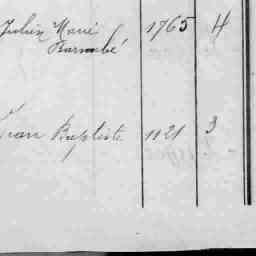 Julien Marie 1765 4
Barnabé
Jean Baptiste 1121 3